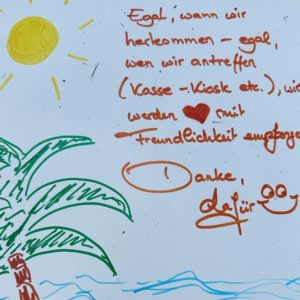 Egal, wann wir
herkommen – egal,
wen wir antreffen
(Kasse – Kiosk etc.), wir
werden ❤ mit
Freundlichkeit empfangen
Danke,
dafür